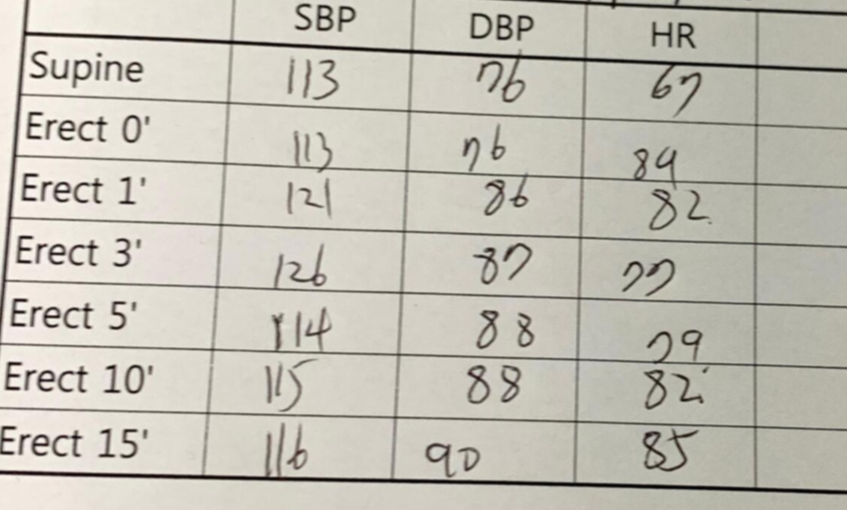 SBP DBP HR
Supine 113 76 67
Erect 0' 113 76 84
Erect 1' 121 86 82
Erect 3' 126 87 77
Erect 5' 114 88 79
Erect 10' 115 88 82
Erect 15' 116 90 85